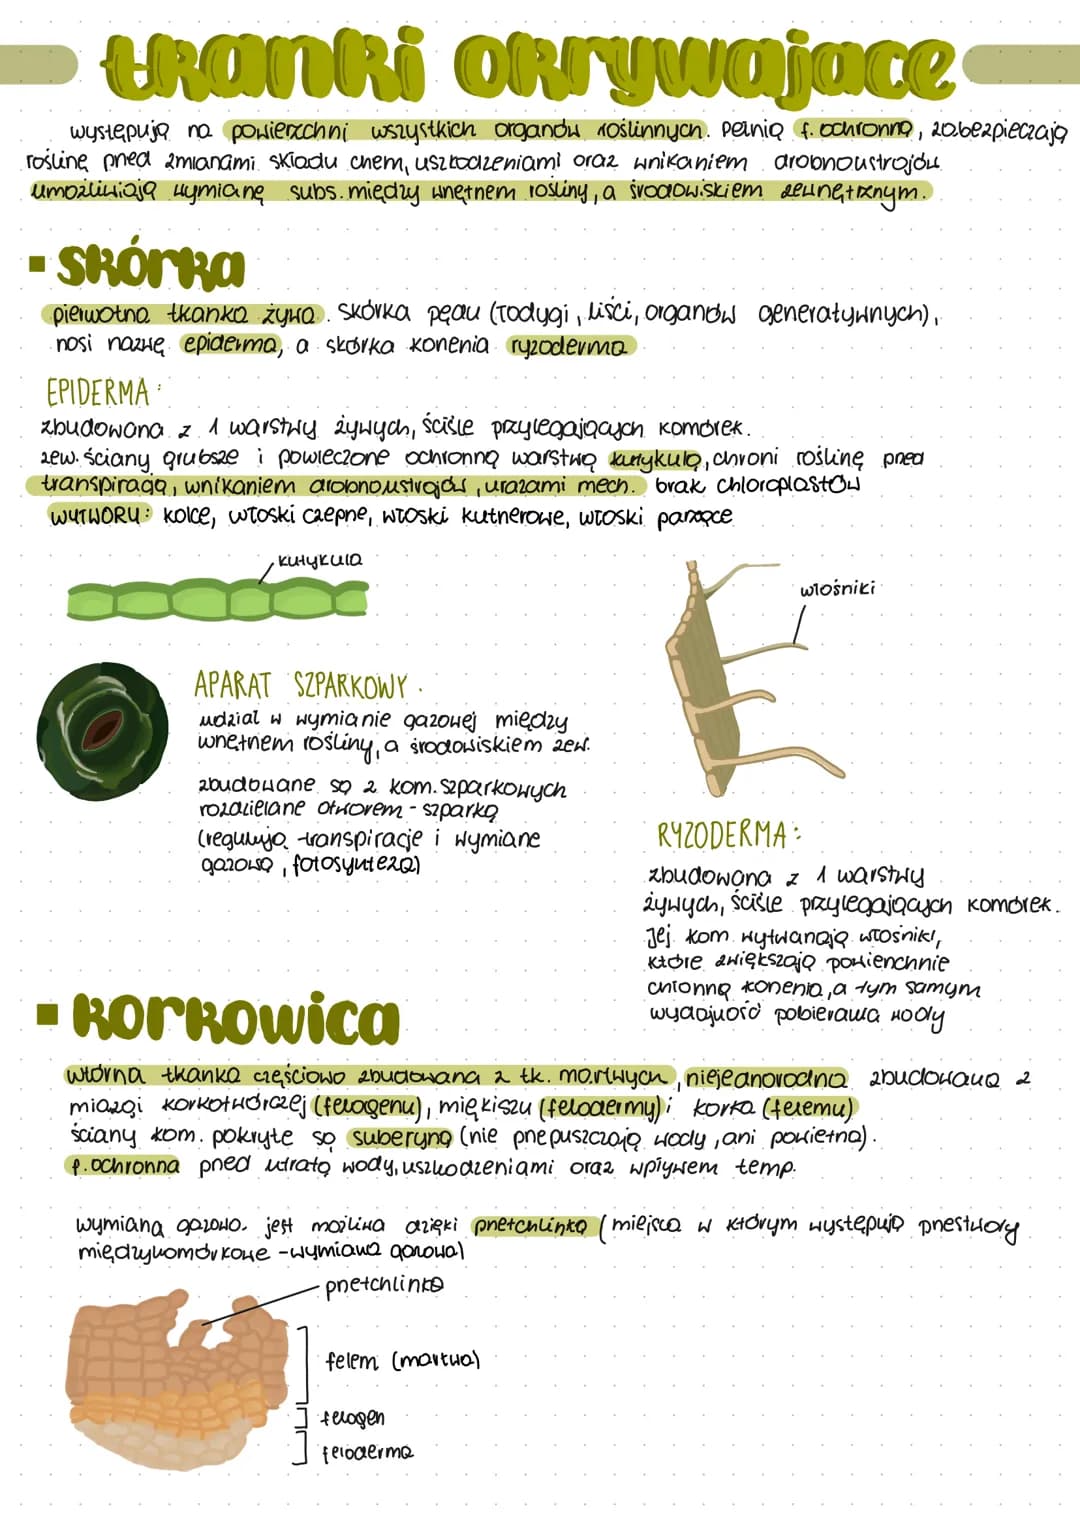 tkanki okrywające
występują na powierzchni wszystkich organów roślinnych. Pełnią f. ochronną, zabezpieczają
roślinę przed zmianami składu chem, uszkodzeniami oraz wnikaniem drobnoustrojów
umożliwiają wymianę subs. między wnętrzem rośliny, a środowiskiem zewnętrznym.
▪ skórka
pierwotna tkanka żywa. Skórka pędu (łodygi, liści, organów generatywnych),
nosi nazwę epiderma, a skórka korzenia ryzoderma
EPIDERMA:
zbudowana z 1 warstwy żywych, ściśle przylegających komórek.
zew. ściany grubsze i powleczone ochronną warstwą kutykulą, chroni roślinę przed
transpiracją, wnikaniem drobnoustrojów, urazami mech. brak chloroplastów
WYTWORY: kolce, włoski czepne, włoski kutnerowe, włoski parzące
kutykula
włośniki
APARAT SZPARKOWY.
udział w wymianie gazowej między
wnętrzem rośliny, a środowiskiem zew.
zbudowane są z kom. szparkowych
rozdzielane otworem - szparką
(regulują transpiracje i wymiane
gazową, fotosyntezą)
RYZODERMA:
zbudowana z 1 warstwy
żywych, ściśle przylegających komórek.
Jej kom wytwarzają włośniki,
które zwiększają powierzchnie
chłonną korzenia, a tym samym
wydajność pobierania wody
▪ korkowica
wtórna tkanka częściowo zbudowana z tk. martwych, niejednorodna zbudowana z
miazgi korkotwórczej (felogenu), miękiszu (felodermy) i korka (felemu)
ściany kom. pokryte są suberyną (nie przepuszczają wody, ani powietrza).
f. ochronna przed utratą wody, uszkodzeniami oraz wpływem temp.
wymiana gazowa jest możliwa dzięki przetchlinką (miejsca w którym występują przestwory
międzykomórkowe - wymiana gazowa)
przetchlinka
felem (martwa)
felogen
feloderma